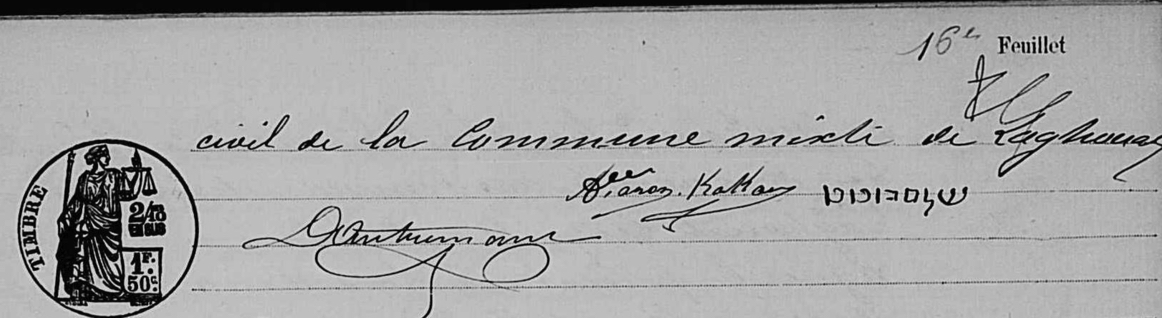 16e Feuillet
civil de la Commune mixte de Laghouat
Aaron Kakou
TIMBRE
2/10
EN SUS
1F.
50c.